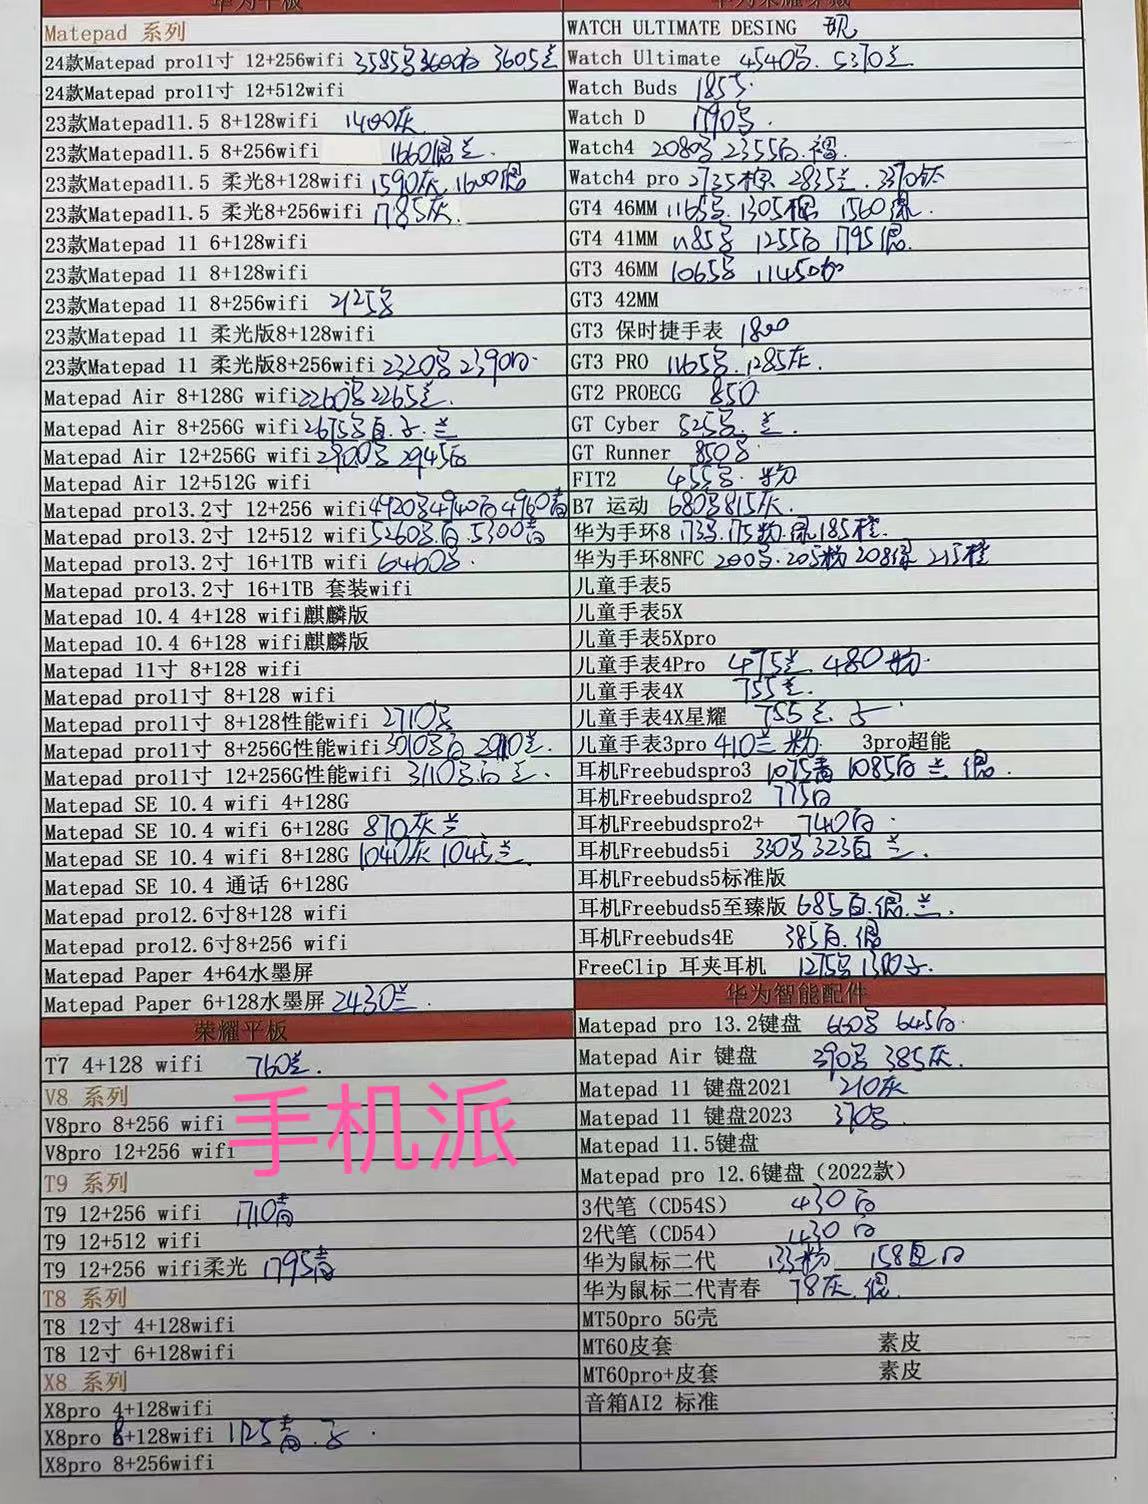 华为平板
Matepad 系列
24款Matepad pro11寸 12+256wifi 3585 3600白 3605兰
24款Matepad pro11寸 12+512wifi
23款Matepad11.5 8+128wifi 1400灰
23款Matepad11.5 8+256wifi 1660 兰.
23款Matepad11.5 柔光8+128wifi 1590灰 1600
23款Matepad11.5 柔光8+256wifi 1785灰.
23款Matepad 11 6+128wifi
23款Matepad 11 8+128wifi
23款Matepad 11 8+256wifi 2125
23款Matepad 11 柔光版8+128wifi
23款Matepad 11 柔光版8+256wifi 2320 2390白.
Matepad Air 8+128G wifi 2260 2265兰.
Matepad Air 8+256G wifi 2675 白. 兰
Matepad Air 12+256G wifi 2900 2945白
Matepad Air 12+512G wifi
Matepad pro13.2寸 12+256 wifi 4920 4940白 4960青
Matepad pro13.2寸 12+512 wifi 5260 白.5300青
Matepad pro13.2寸 16+1TB wifi 6460
Matepad pro13.2寸 16+1TB 套装wifi
Matepad 10.4 4+128 wifi麒麟版
Matepad 10.4 6+128 wifi麒麟版
Matepad 11寸 8+128 wifi
Matepad pro11寸 8+128 wifi
Matepad pro11寸 8+128性能wifi 2710
Matepad pro11寸 8+256G性能wifi 3010 白 兰.
Matepad pro11寸 12+256G性能wifi 3110 白 兰.
Matepad SE 10.4 wifi 4+128G
Matepad SE 10.4 wifi 6+128G 870灰 兰
Matepad SE 10.4 wifi 8+128G 1040灰 1045兰.
Matepad SE 10.4 通话 6+128G
Matepad pro12.6寸8+128 wifi
Matepad pro12.6寸8+256 wifi
Matepad Paper 4+64水墨屏
Matepad Paper 6+128水墨屏 2430兰.
荣耀平板
T7 4+128 wifi 760兰.
V8 系列
V8pro 8+256 wifi
V8pro 12+256 wifi
手机派
T9 系列
T9 12+256 wifi 1710青
T9 12+512 wifi
T9 12+256 wifi柔光 1795青
T8 系列
T8 12寸 4+128wifi
T8 12寸 6+128wifi
X8 系列
X8pro 4+128wifi
X8pro 6+128wifi 1125青.
X8pro 8+256wifi
华为荣耀穿戴
WATCH ULTIMATE DESING 现
Watch Ultimate 4540 . 5370兰
Watch Buds 1855
Watch D 1790 .
Watch4 2080 2355白.
Watch4 pro 2735棕 2835兰. 3370钛
GT4 46MM 1165 . 1305棕 1560绿.
GT4 41MM 1185 1255白 1795 .
GT3 46MM 1065 1145
GT3 42MM
GT3 保时捷手表 1800
GT3 PRO 1165 .1285灰.
GT2 PROECG 850
GT Cyber 525 . 兰.
GT Runner 850
FIT2 455 . 粉
B7 运动 680 815灰.
华为手环8 173 .175粉.绿 185橙.
华为手环8NFC 200 .205粉 208绿 215橙
儿童手表5
儿童手表5X
儿童手表5Xpro
儿童手表4Pro 475兰 480粉.
儿童手表4X 755兰.
儿童手表4X星耀 755兰.
儿童手表3pro 410兰 粉. 3pro超能
耳机Freebudspro3 1075青 1085白 兰 .
耳机Freebudspro2 775白
耳机Freebudspro2+ 740白.
耳机Freebuds5i 330 323白 兰.
耳机Freebuds5标准版
耳机Freebuds5至臻版 685白. .兰.
耳机Freebuds4E 385白.
FreeClip 耳夹耳机 1275
华为智能配件
Matepad pro 13.2键盘 660 645白.
Matepad Air 键盘 390 385灰.
Matepad 11 键盘2021 210灰
Matepad 11 键盘2023 370
Matepad 11.5键盘
Matepad pro 12.6键盘（2022款）
3代笔（CD54S） 430白
2代笔（CD54） 430白
华为鼠标二代 133粉 158 白
华为鼠标二代青春 78灰.
MT50pro 5G壳
MT60皮套 素皮
MT60pro+皮套 素皮
音箱AI2 标准